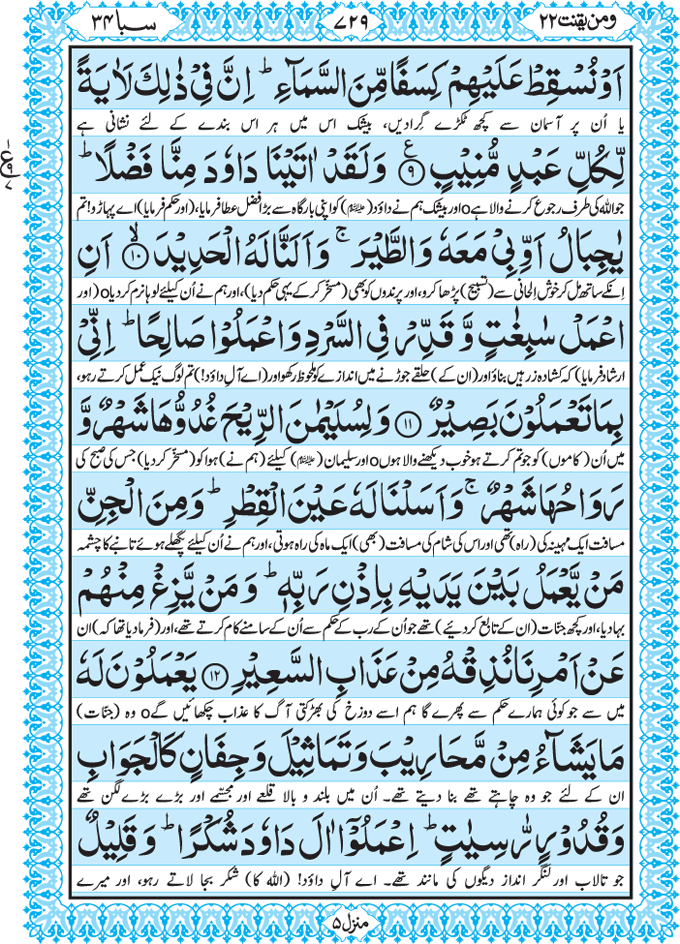 ومن یقنت ۲۲ ۷۲۹ سبا ۳۴
اَوْ نُسْقِطْ عَلَیْهِمْ کِسَفًا مِّنَ السَّمَآءِ ؕ اِنَّ فِیْ ذٰلِكَ لَاٰیَةً
یا اُن پر آسمان سے کچھ ٹکڑے گرادیں، بیشک اس میں ہر اس بندے کے لئے نشانی ہے
لِّکُلِّ عَبْدٍ مُّنِیْبٍ ۹ وَلَقَدْ اٰتَیْنَا دَاوٗدَ مِنَّا فَضْلًا ؕ
جو اللہ کی طرف رجوع کرنے والا ہے o اور بیشک ہم نے داؤد (علیہ السلام) کو اپنی بارگاہ سے بڑا فضل عطا فرمایا، (اور حکم فرمایا) اے پہاڑو! تم
یٰجِبَالُ اَوِّبِیْ مَعَهٗ وَالطَّیْرَ ۚ وَاَلَنَّا لَهُ الْحَدِیْدَ ۱۰ۙ اَنِ
اِنکے ساتھ مل کر خوش الحانی سے (تسبیح) پڑھا کرو، اور پرندوں کو بھی (مسخّر کر کے یہی حکم دیا)، اور ہم نے اُن کیلئے لوہا نرم کر دیا o (اور
اعْمَلْ سٰبِغٰتٍ وَّ قَدِّرْ فِی السَّرْدِ وَاعْمَلُوْا صَالِحًا ؕ اِنِّیْ
ارشاد فرمایا) کہ کشادہ زرہیں بناؤ اور (ان کے) حلقے جوڑنے میں اندازے کو ملحوظ رکھو اور (اے آلِ داؤد!) تم لوگ نیک عمل کرتے رہو،
بِمَا تَعْمَلُوْنَ بَصِیْرٌ ۱۱ وَلِسُلَیْمٰنَ الرِّیْحَ غُدُوُّهَا شَهْرٌ وَّ
میں اُن (کاموں) کو جو تم کرتے ہو خوب دیکھنے والا ہوں o اور سلیمان (علیہ السلام) کیلئے (ہم نے) ہوا کو (مسخّر کر دیا) جس کی صبح کی
رَوَاحُهَا شَهْرٌ ۚ وَاَسَلْنَا لَهٗ عَیْنَ الْقِطْرِ ؕ وَمِنَ الْجِنِّ
مسافت ایک مہینہ کی (راہ) تھی اور اس کی شام کی مسافت (بھی) ایک ماہ کی راہ ہوتی، اور ہم نے اُن کیلئے پگھلے ہوئے تانبے کا چشمہ
مَنْ یَّعْمَلُ بَیْنَ یَدَیْهِ بِاِذْنِ رَبِّهٖ ؕ وَمَنْ یَّزِغْ مِنْهُمْ
بہا دیا، اور کچھ جنّات (ان کے تابع کر دئیے) تھے جو اُن کے رب کے حکم سے اُن کے سامنے کام کرتے تھے، اور (فرما دیا تھا کہ) ان
عَنْ اَمْرِنَا نُذِقْهُ مِنْ عَذَابِ السَّعِیْرِ ۱۲ یَعْمَلُوْنَ لَهٗ
میں سے جو کوئی ہمارے حکم سے پھرے گا ہم اسے دوزخ کی بھڑکتی آگ کا عذاب چکھائیں گے o وہ (جنّات)
مَا یَشَآءُ مِنْ مَّحَارِیْبَ وَتَمَاثِیْلَ وَجِفَانٍ کَالْجَوَابِ
ان کے لئے جو وہ چاہتے تھے بنا دیتے تھے۔ اُن میں بلند و بالا قلعے اور مجسّمے اور بڑے بڑے لگن تھے
وَقُدُوْرٍ رّٰسِیٰتٍ ؕ اِعْمَلُوْۤا اٰلَ دَاوٗدَ شُکْرًا ؕ وَقَلِیْلٌ
جو تالاب اور لنگر انداز دیگوں کی مانند تھے۔ اے آلِ داؤد! (اللہ کا) شکر بجا لاتے رہو، اور میرے
منزل ۵